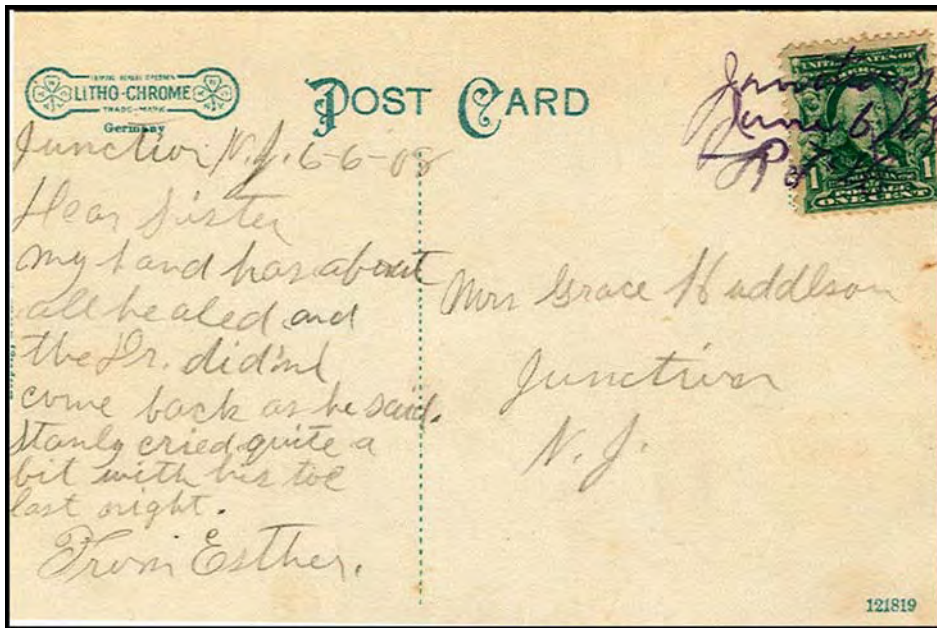 LITHO-CHROME
TRADE-MARK
Germany
POST CARD
UNITED STATES OF
1
1
POSTAGE
ONE CENT
June 6
Junction N.J. 6-6-08
Dear Sister
my hand has about
all healed and
the Dr. did'nt
come back as he said.
Stanly cried quite a
bit with his toe
last night.
From Esther.
Mrs Grace Huddlson
Junction
N. J.
121819